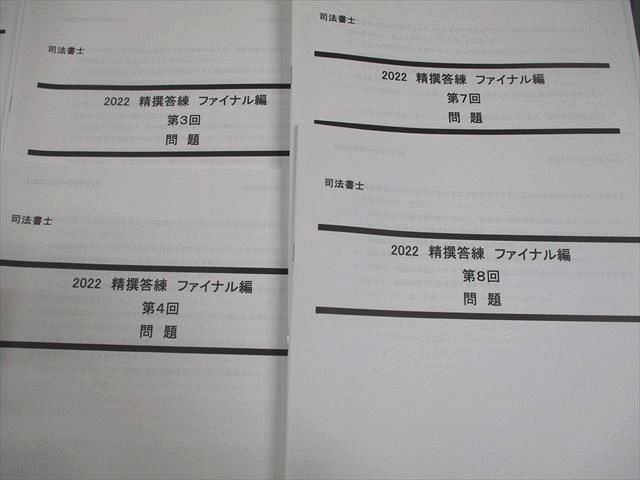 司法書士
2022 精撰答練 ファイナル編
第3回
問 題
司法書士
2022 精撰答練 ファイナル編
第7回
問 題
司法書士
2022 精撰答練 ファイナル編
第4回
問 題
司法書士
2022 精撰答練 ファイナル編
第8回
問 題